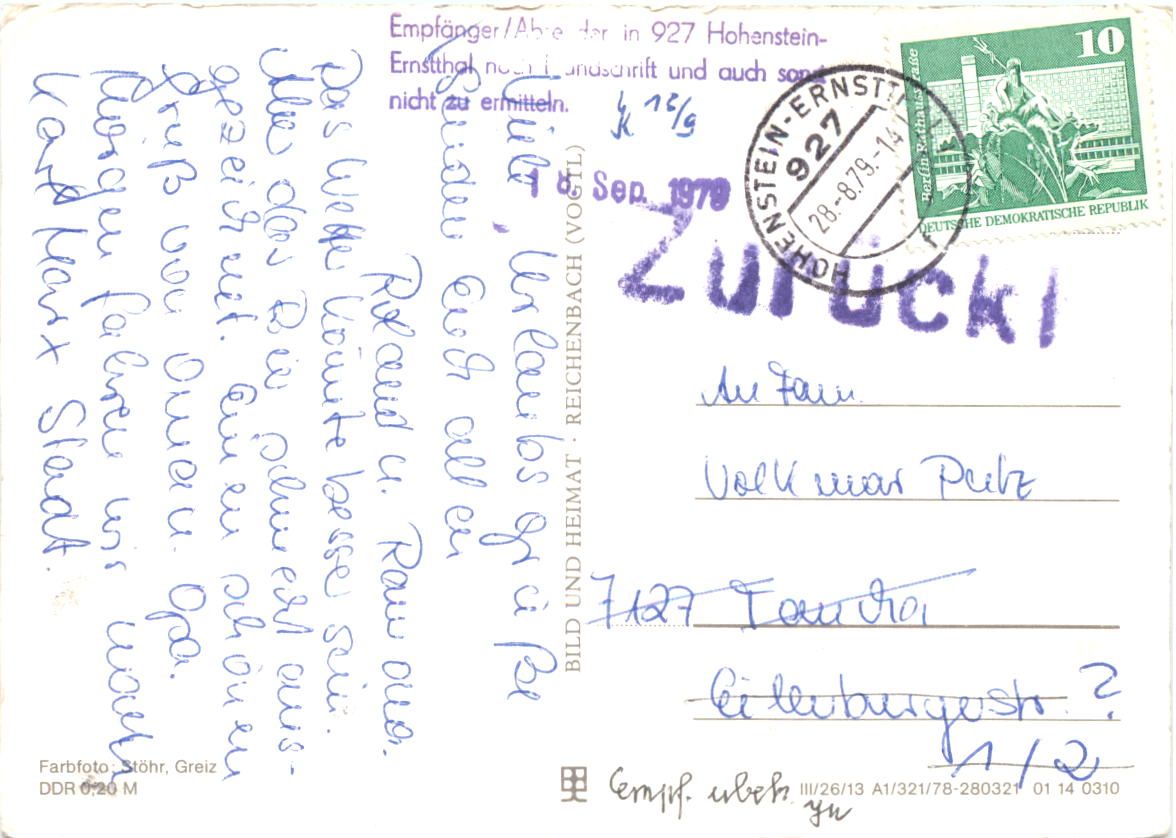 Empfänger/Absender in 927 Hohenstein-
Ernstthal nach Handschrift und auch sonst
nicht zu ermitteln.
12/9
18. Sep. 1979
Zurück!
HOHENSTEIN-ERNSTTHAL 1
927
28.-8.79.-14
f
10
Berlin-Rathausstraße
DEUTSCHE DEMOKRATISCHE REPUBLIK
Viele Urlaubsgrüße
senden Euch allen
Roland u. Ramona.
Das Wetter könnte besser sein.
Aber das Bier schmeckt aus-
gezeichnet. Einen schönen
Gruß von Oma u. Opa.
Morgen fahren wir nach
Karl Marx Stadt.
BILD UND HEIMAT · REICHENBACH (VOGTL)
An Fam.
Volkmar Putz
7127 Taucha
Eilenburgestr. ?
1/2
Farbfoto: Stöhr, Greiz
DDR 0,20 M
Empf. unbek.
III/26/13 A1/321/78-280321 01 14 0310